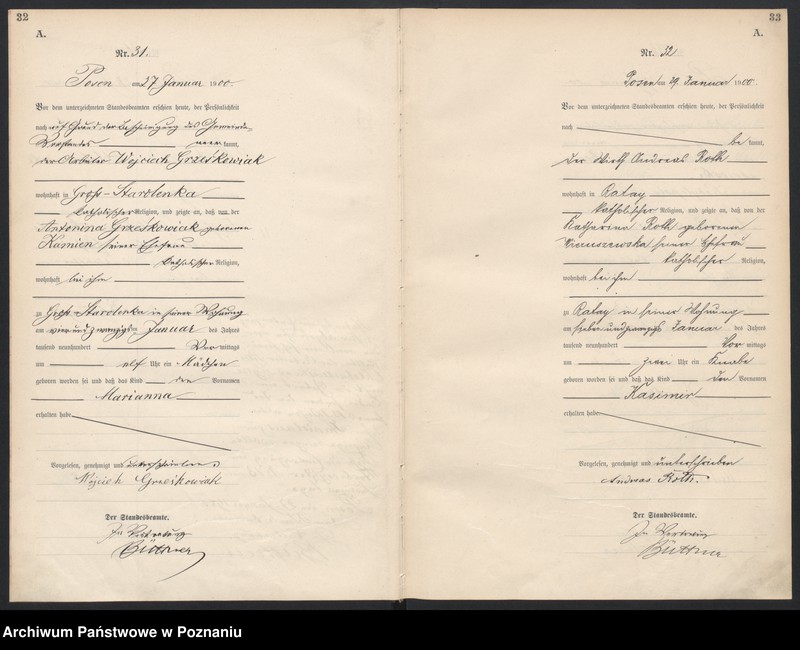 32
A.
Nr. 31.
Posen am 27 Januar 1900.
Vor dem unterzeichneten Standesbeamten erschien heute, der Persönlichkeit
nach auf Grund der Bescheinigung des Gemeinde
Vorstandes kannt,
der Arbeiter Wojciech Grześkowiak
wohnhaft in Groß-Starolenka
katholischer Religion, und zeigte an, daß von der
Antonina Grześkowiak geborenen
Kamien seiner Ehefrau
katholischer Religion,
wohnhaft bei ihm
zu Groß-Starolenka in seiner Wohnung
am vierundzwanzigsten Januar des Jahres
tausend neunhundert Vor mittags
um elf Uhr ein Mädchen
geboren worden sei und daß das Kind den Vornamen
Marianna
erhalten habe
Vorgelesen, genehmigt und unterschrieben
Wojciech Grześkowiak
Der Standesbeamte.
In Vertretung
Büttner
33
A.
Nr. 32
Posen am 29 Januar 1900.
Vor dem unterzeichneten Standesbeamten erschien heute, der Persönlichkeit
nach
be kannt,
der Wirth Andreas Roth
wohnhaft in Ratay
katholischer Religion, und zeigte an, daß von der
Katharina Roth geborenen
seiner Ehefrau
katholischer Religion,
wohnhaft bei ihm
zu Ratay in seiner Wohnung
am siebenundzwanzigsten Januar des Jahres
tausend neunhundert Vor mittags
um zwei Uhr ein Knabe
geboren worden sei und daß das Kind den Vornamen
Kasimir
erhalten habe
Vorgelesen, genehmigt und unterschrieben
Andreas Roth.
Der Standesbeamte.
In Vertretung
Büttner
Archiwum Państwowe w Poznaniu